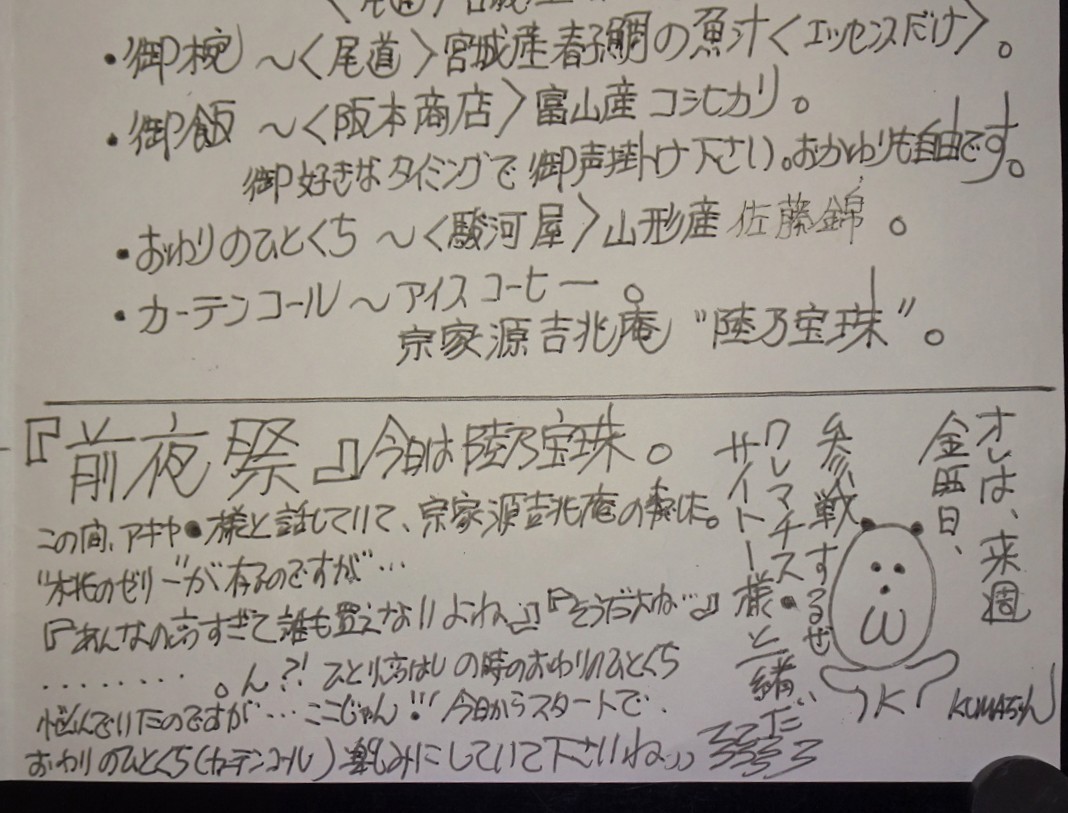 ・御椀 〜〈尾道〉宮城産春子鯛の魚汁〈エッセンスだけ〉。
・御飯 〜〈阪本商店〉富山産コシヒカリ。
御好きなタイミングで御声掛け下さい。おかわりも自由です。
・おわりのひとくち 〜〈駿河屋〉山形産佐藤錦。
・カーテンコール〜アイスコーヒー。
宗家源吉兆庵 "陸乃宝珠"。
『前夜祭』今日は陸乃宝珠。
この間、アキヤ●様と話していて、宗家源吉兆庵の
"水桃のゼリー"が有るのですが"…
『あんなの高すぎて誰も買えないよね』『そうだよね』
………。ん?! ひとり はしの時のおわりのひとくち
悩んでいたのですが…ここじゃん!! 今日からスタートで、
おわりのひとくち(カーテンコール)楽しみにしていて下さいね
オレは、来週
金曜日、
参戦するぜ
クレマチス●
サイトー様と一緒だ
KUMASAN